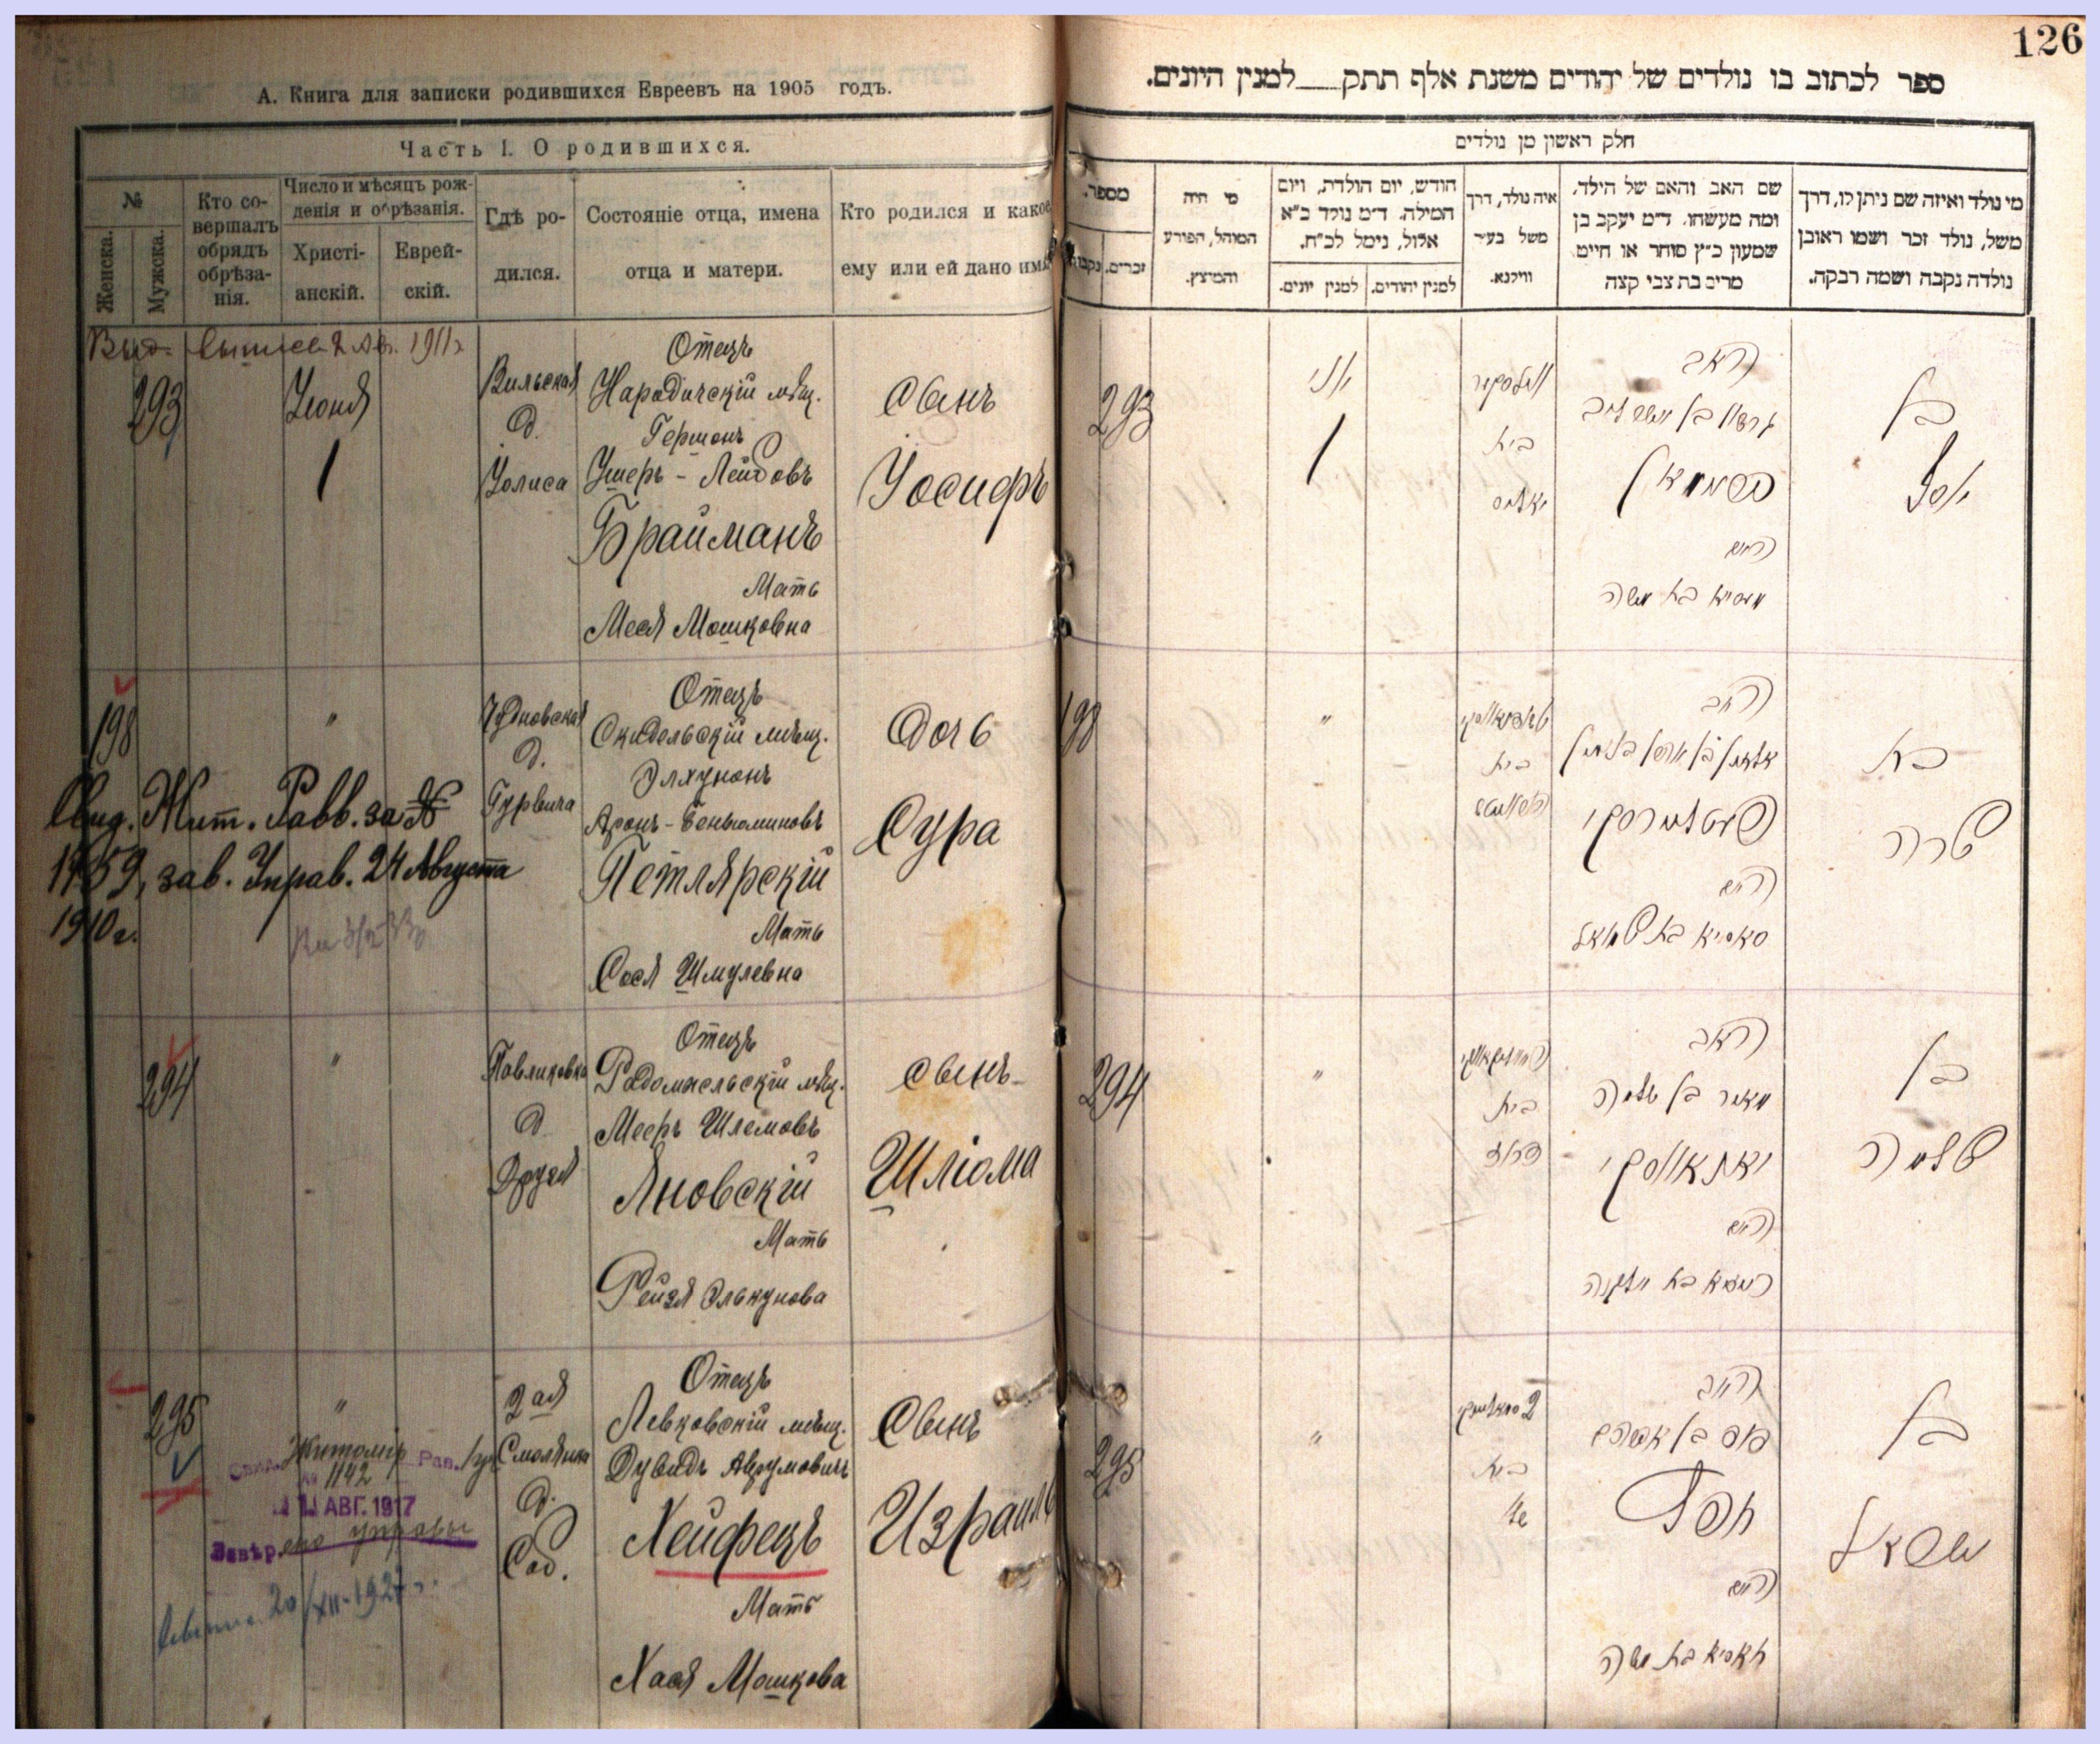 126
А. Книга для записки родившихся Евреевъ на 1905 годъ.
Часть I. О родившихся.
№
Женска.
Мужска.
Кто со-
вершалъ
обрядъ
обрѣза-
нія.
Число и мѣсяцъ рож-
денія и обрѣзанія.
Христі-
анскій.
Еврей-
скій.
Гдѣ ро-
дился.
Состояніе отца, имена
отца и матери.
Кто родился и какое
ему или ей дано имя
1911
293
Іюня
1
Вильская
д.
Отецъ
Народичскій мѣщ.
Гершонъ
Ушеръ-Лейбовъ
Брайманъ
Мать
Меся Мошковна
Сынъ
Іосифъ
198
"
Чудновская
д.
Гурвича
Отецъ
Скидельскій мѣщ.
Элхунонъ
Аронъ-Беньюминовъ
Петлярскій
Мать
Сося Шмулевна
Дочь
Сура
Свид. Жит. Равв. за №
1459, зав. Управ. 24 Августа
1910 г.
294
"
Павликовка
д.
Друзя
Отецъ
Радомысльскій мѣщ.
Мееръ Шлемовъ
Яновскій
Мать
Рейзя Элькунова
Сынъ
Шліома
295
"
2ая
Смолянка
д.
Соб.
Отецъ
Левковскій мѣщ.
Дувидъ Аврумовичъ
Хейфецъ
Мать
Хася Мошкова
Сынъ
Израиль
Житомір Рав.
№ 1142
АВГ. 1917
Завѣр. управы
20/XII-1927 г.
ספר לכתוב בו נולדים של יהודים משנת אלף תתק__למנין היונים.
חלק ראשון מן נולדים
מספר.
זכרים.
נקבות
מי היה
המוהל, הפורע
והמוצץ.
חודש, יום הולדת, ויום
המילה. ד״מ נולד כ״א
אלול, נימל לכ״ח.
למנין יונים.
למנין יהודים.
איה נולד, דרך
משל בעיר
ווילנא.
שם האב והאם של הילד,
ומה מעשהו. ד״מ יעקב בן
שמעון כ״ץ סוחר או חייט
מרים בת צבי קצה
מי נולד ואיזה שם ניתן לו, דרך
משל, נולד זכר ושמו ראובן
נולדה נקבה ושמה רבקה.
293
יוני
1
בית
האב
האם
מעסיא בת משה
בן
יוסף
198
"
בית
האב
האם
סאסיא בת שמואל
בת
שרה
294
"
בית
האב
מאיר בן שלמה
יאנאווסקי
האם
בן
שלמה
295
"
בית
האב
דוד בן אברהם
חפץ
האם
חאסיא בת משה
בן
ישראל